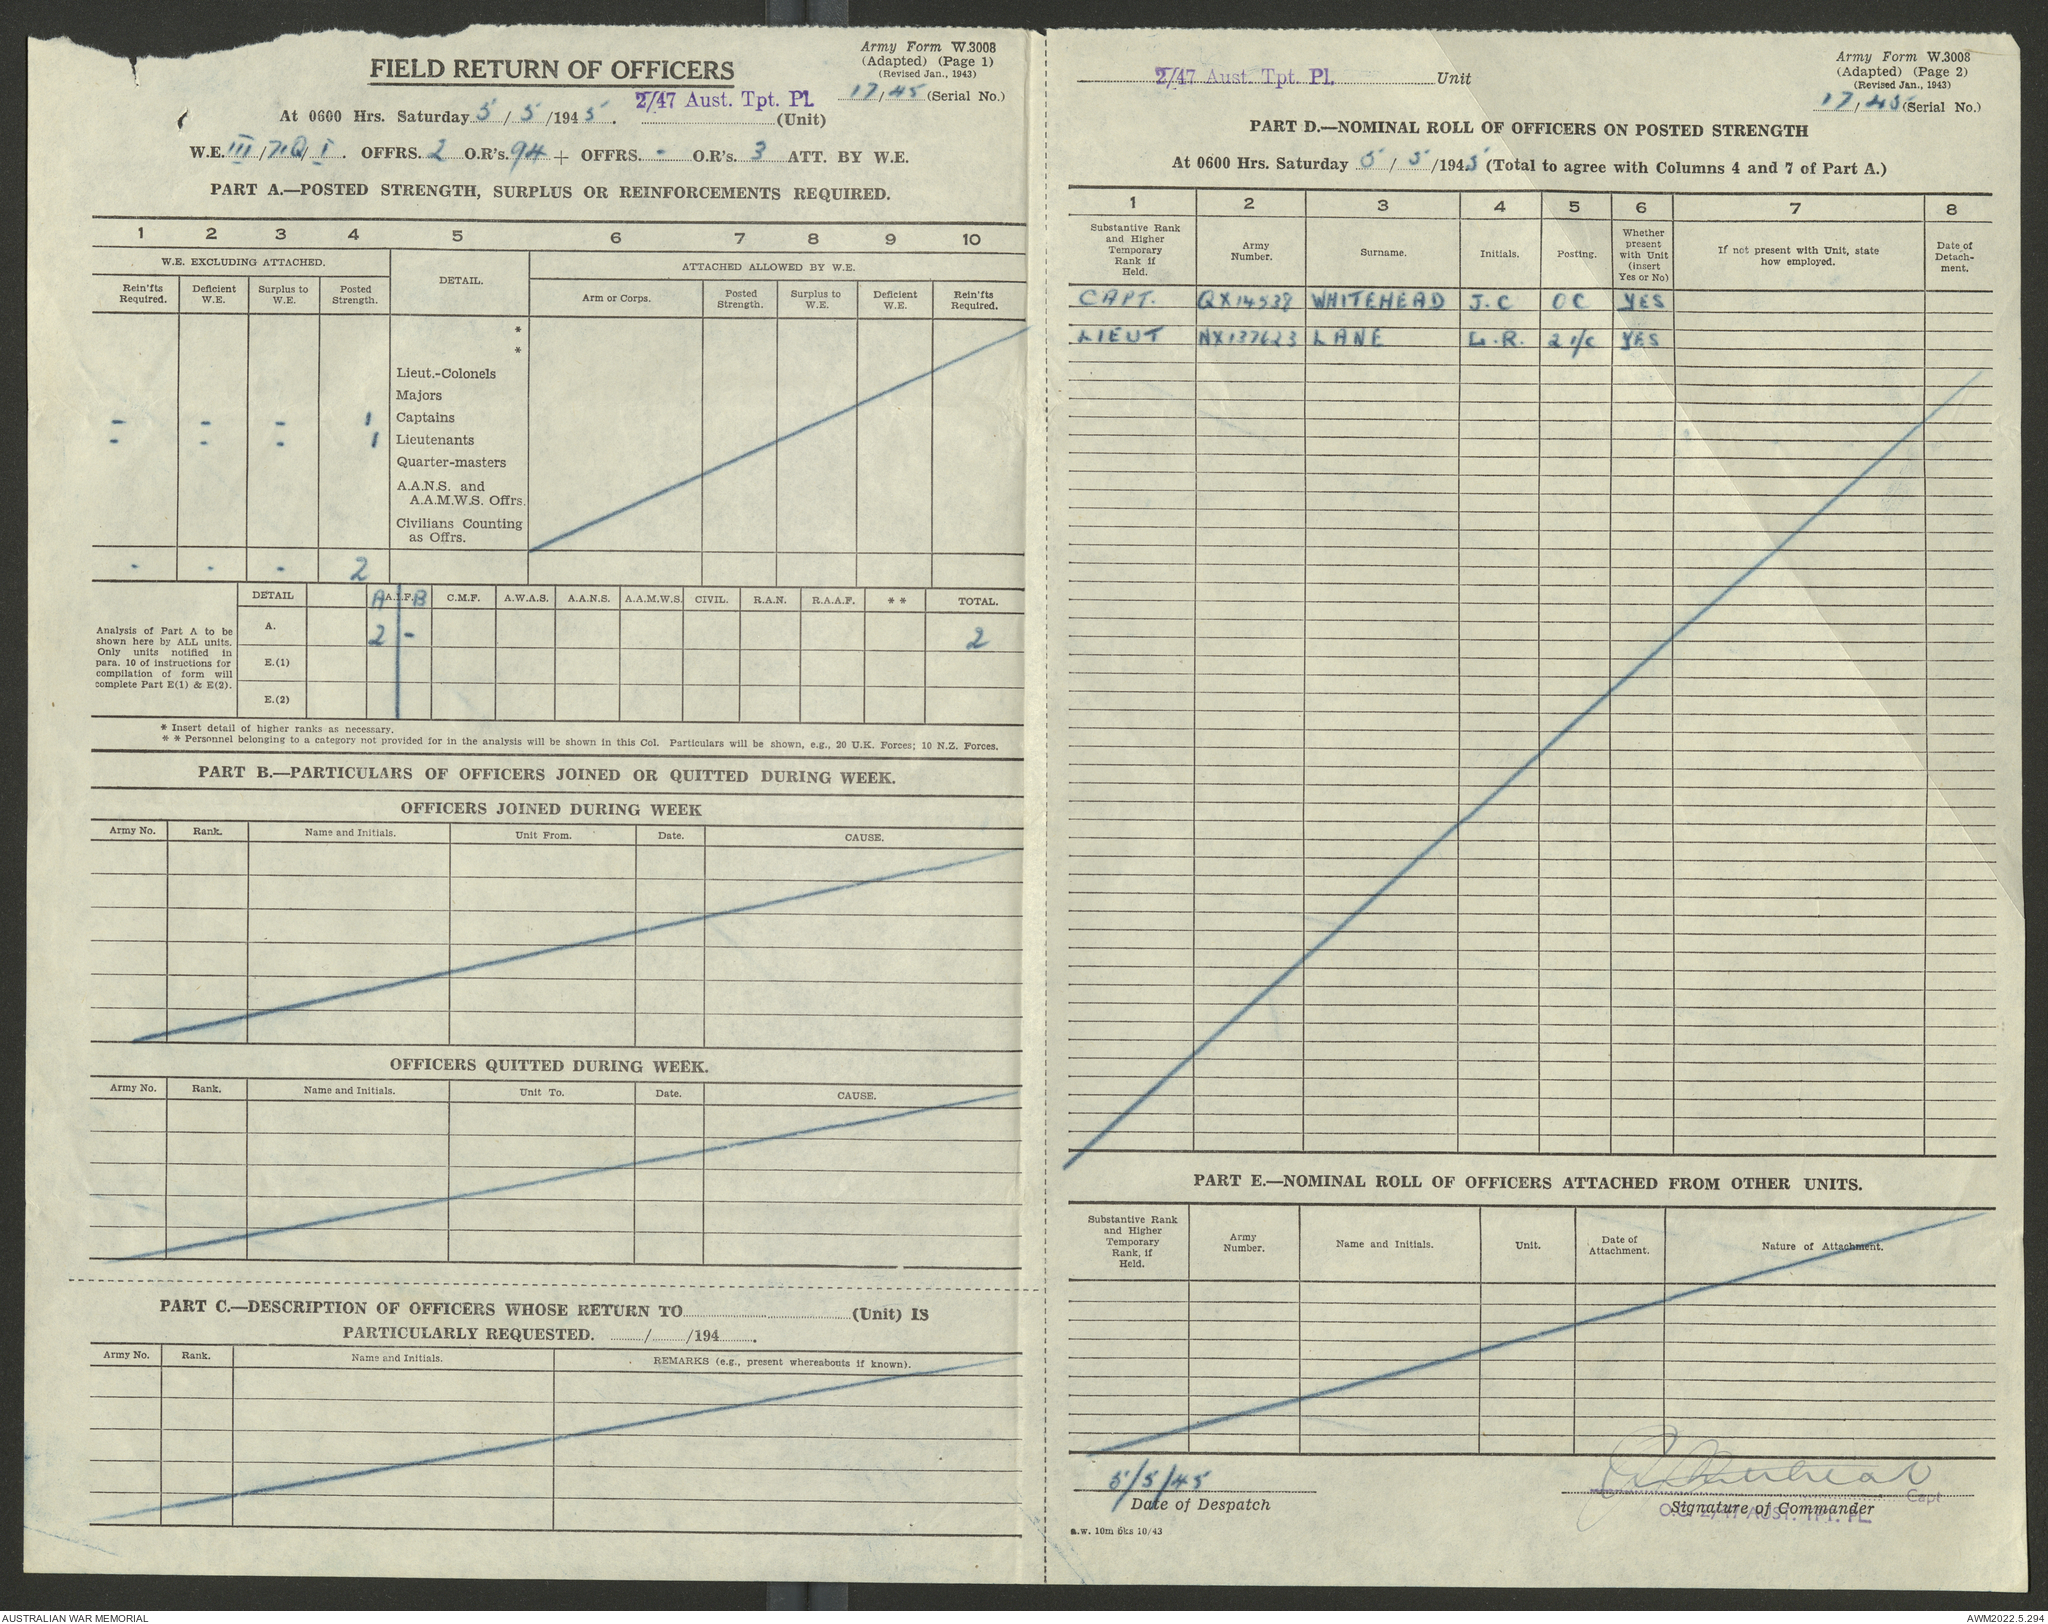 Army Form W.3008
(Adapted) (Page 1)
(Revised Jan., 1943)
FIELD RETURN OF OFFICERS
17/45 (Serial No.)
2/47 Aust. Tpt. Pl.
At 0600 Hrs. Saturday 5/5/1945. (Unit)
W.E. III/71Q/I. OFFRS. 2 O.R's. 94 + OFFRS. - O.R's. 3 ATT. BY W.E.
PART A.—POSTED STRENGTH, SURPLUS OR REINFORCEMENTS REQUIRED.
1 2 3 4 5 6 7 8 9 10
W.E. EXCLUDING ATTACHED. DETAIL. ATTACHED ALLOWED BY W.E.
Rein'fts Required. Deficient W.E. Surplus to W.E. Posted Strength. Arm or Corps. Posted Strength. Surplus to W.E. Deficient W.E. Rein'fts Required.
*
*
Lieut.-Colonels
Majors
- - - 1 Captains
- - - 1 Lieutenants
Quarter-masters
A.A.N.S. and
A.A.M.W.S. Offrs.
Civilians Counting
as Offrs.
- - - 2
DETAIL A A.I.F. B C.M.F. A.W.A.S. A.A.N.S. A.A.M.W.S. CIVIL. R.A.N. R.A.A.F. * * TOTAL.
A. 2 - 2
E.(1)
E.(2)
Analysis of Part A to be
shown here by ALL units.
Only units notified in
para. 10 of instructions for
compilation of form will
complete Part E(1) & E(2).
* Insert detail of higher ranks as necessary.
* * Personnel belonging to a category not provided for in the analysis will be shown in this Col. Particulars will be shown, e.g., 20 U.K. Forces; 10 N.Z. Forces.
PART B.—PARTICULARS OF OFFICERS JOINED OR QUITTED DURING WEEK.
OFFICERS JOINED DURING WEEK
Army No. Rank. Name and Initials. Unit From. Date. CAUSE.
OFFICERS QUITTED DURING WEEK.
Army No. Rank. Name and Initials. Unit To. Date. CAUSE.
PART C.—DESCRIPTION OF OFFICERS WHOSE RETURN TO (Unit) IS
PARTICULARLY REQUESTED. / /194 .
Army No. Rank. Name and Initials. REMARKS (e.g., present whereabouts if known).
Army Form W.3008
(Adapted) (Page 2)
(Revised Jan., 1943)
2/47 Aust. Tpt. Pl. Unit
17/45 (Serial No.)
PART D.—NOMINAL ROLL OF OFFICERS ON POSTED STRENGTH
At 0600 Hrs. Saturday 5/5/1945 (Total to agree with Columns 4 and 7 of Part A.)
1 2 3 4 5 6 7 8
Substantive Rank and Higher Temporary Rank if Held. Army Number. Surname. Initials. Posting. Whether present with Unit (insert Yes or No) If not present with Unit, state how employed. Date of Detach-ment.
CAPT. QX14538 WHITEHEAD J.C OC YES
LIEUT NX137623 LANE L.R. 2 i/c YES
PART E.—NOMINAL ROLL OF OFFICERS ATTACHED FROM OTHER UNITS.
Substantive Rank and Higher Temporary Rank, if Held. Army Number. Name and Initials. Unit. Date of Attachment. Nature of Attachment.
5/5/45
Date of Despatch
Capt
Signature of Commander
O.C. 2/47 AUST. TPT. PL.
a.w. 10m bks 10/43
AUSTRALIAN WAR MEMORIAL
AWM2022.5.294